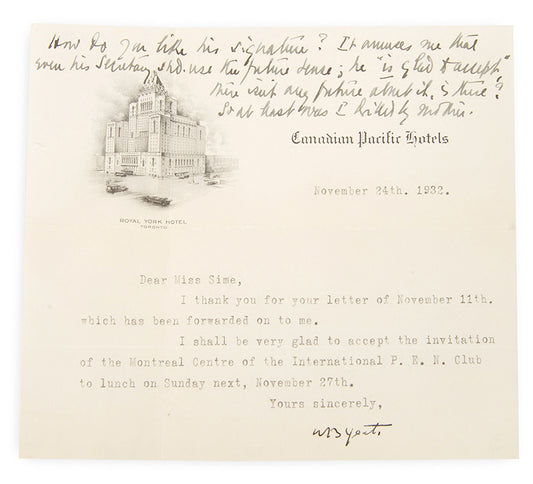 How do you like his signature? It amuses me that
even his Secretary shd. use the future tense; he "is glad to accept"
there isn't any future about it, is there?
So at least was I drilled by mother.
Canadian Pacific Hotels
November 24th. 1932.
ROYAL YORK HOTEL
TORONTO
Dear Miss Sime,
I thank you for your letter of November 11th.
which has been forwarded on to me.
I shall be very glad to accept the invitation
of the Montreal Centre of the International P. E. N. Club
to lunch on Sunday next, November 27th.
Yours sincerely,
WB Yeats